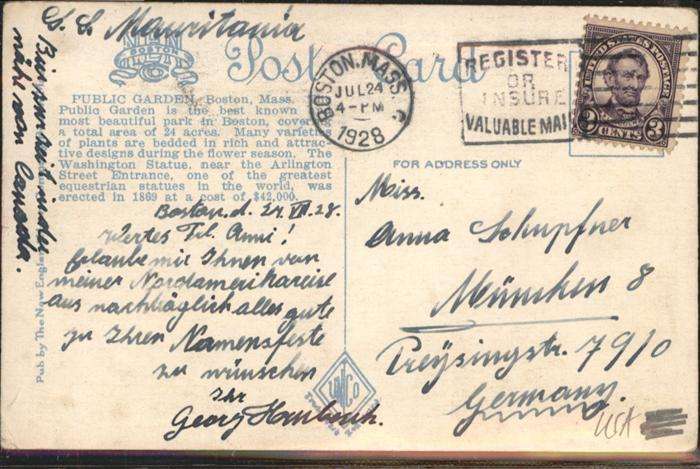 S.S. Mauritania
Post Card
BOSTON, MASS.
JUL 24
4-PM
1928
REGISTER
OR
INSURE
VALUABLE MAIL
UNITED STATES POSTAGE
3 CENTS 3
PUBLIC GARDEN, Boston, Mass.
Public Garden is the best known
most beautiful park in Boston, cove
a total area of 24 acres. Many varieties
of plants are bedded in rich and attrac-
tive designs during the flower season. The
Washington Statue, near the Arlington
Street Entrance, one of the greatest
equestrian statues in the world, was
erected in 1869 at a cost of $42,000.
FOR ADDRESS ONLY
Boston, d. 24. VII. 28.
Wertes Frl. Anni!
Erlaube mir Ihnen von
meiner Nordamerikareise
aus nachträglich alles gute
zu Ihren Namensfeste
zu wünschen
Ihr
Georg
Bin soweit
nähe von Canada.
Pub. by The New England
Miss.
Anna Schupfner
München 8
Preysingstr. 79/0
Germany.
USA